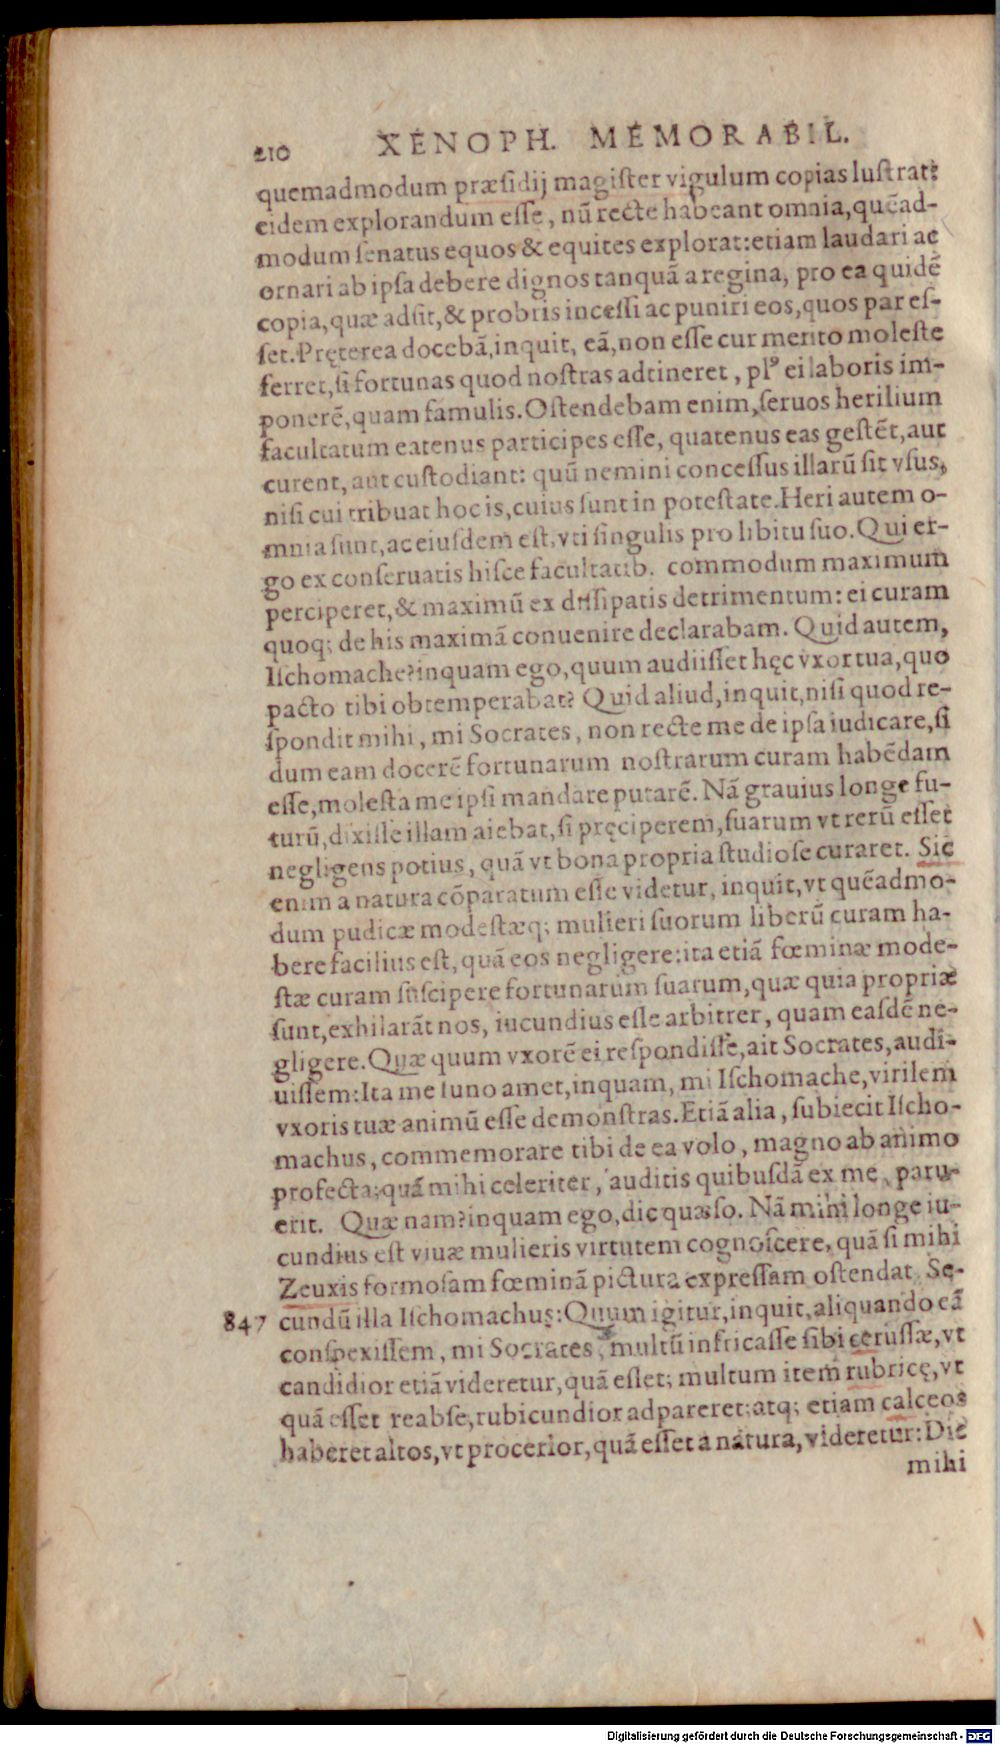 210 XENOPH. MEMORABIL.
quemadmodum præsidij magister vigulum copias lustrat:
eidem explorandum esse, nũ recte habeant omnia, quẽad-
modum senatus equos & equites explorat: etiam laudari ac
ornari ab ipsa debere dignos tanquã a regina, pro ea quidẽ
copia, quæ adsit, & probris incessi ac puniri eos, quos par es-
set. Pręterea docebã, inquit, eã, non esse cur merito moleste
ferret, si fortunas quod nostras adtineret, plꝰ ei laboris im-
ponerẽ, quam famulis. Ostendebam enim, seruos herilium
facultatum eatenus participes esse, quatenus eas gestẽt, aut
curent, aut custodiant: quũ nemini concessus illarũ sit vsus,
nisi cui tribuat hoc is, cuius sunt in potestate. Heri autem o-
mnia sunt, ac eiusdem est, vti singulis pro libitu suo. Qui er-
go ex conseruatis hisce facultatib. commodum maximum
perciperet, & maximũ ex dissipatis detrimentum: ei curam
quoq; de his maximã conuenire declarabam. Quid autem,
Ischomache? inquam ego, quum audiisset hęc vxor tua, quo
pacto tibi obtemperabat? Quid aliud, inquit, nisi quod re-
spondit mihi, mi Socrates, non recte me de ipsa iudicare, si
dum eam docerẽ fortunarum nostrarum curam habẽdam
esse, molesta me ipsi mandare putarẽ. Nã grauius longe fu-
turũ, dixisse illam aiebat, si pręciperem, suarum vt rerũ esset
negligens potius, quã vt bona propria studiose curaret. Sic
enim a natura cõparatum esse videtur, inquit, vt quẽadmo-
dum pudicæ modestæq; mulieri suorum liberũ curam ha-
bere facilius est, quã eos negligere: ita etiã fœminæ mode-
stæ curam suscipere fortunarum suarum, quæ quia propriæ
sunt, exhilarãt nos, iucundius esse arbitrer, quam easdẽ ne-
gligere. Quæ quum vxorẽ ei respondisse, ait Socrates, audi-
uissem: Ita me Iuno amet, inquam, mi Ischomache, virilem
vxoris tuæ animũ esse demonstras. Etiã alia, subiecit Ischo-
machus, commemorare tibi de ea volo, magno ab animo
profecta; quã mihi celeriter, auditis quibusdã ex me, paru-
erit. Quæ nam? inquam ego, dic quæso. Nã mihi longe iu-
cundius est viuæ mulieris virtutem cognoscere, quã si mihi
Zeuxis formosam fœminã pictura expressam ostendat. Se-
847 cundũ illa Ischomachus: Quum igitur, inquit, aliquando eã
conspexissem, mi Socrates, multũ infricasse sibi cerussæ, vt
candidior etiã videretur, quã esset; multum item rubricę, vt
quã esset reabse, rubicundior adpareret: atq; etiam calceos
haberet altos, vt procerior, quã esset a natura, videretur: Dic
mihi
Digitalisierung gefördert durch die Deutsche Forschungsgemeinschaft - DFG